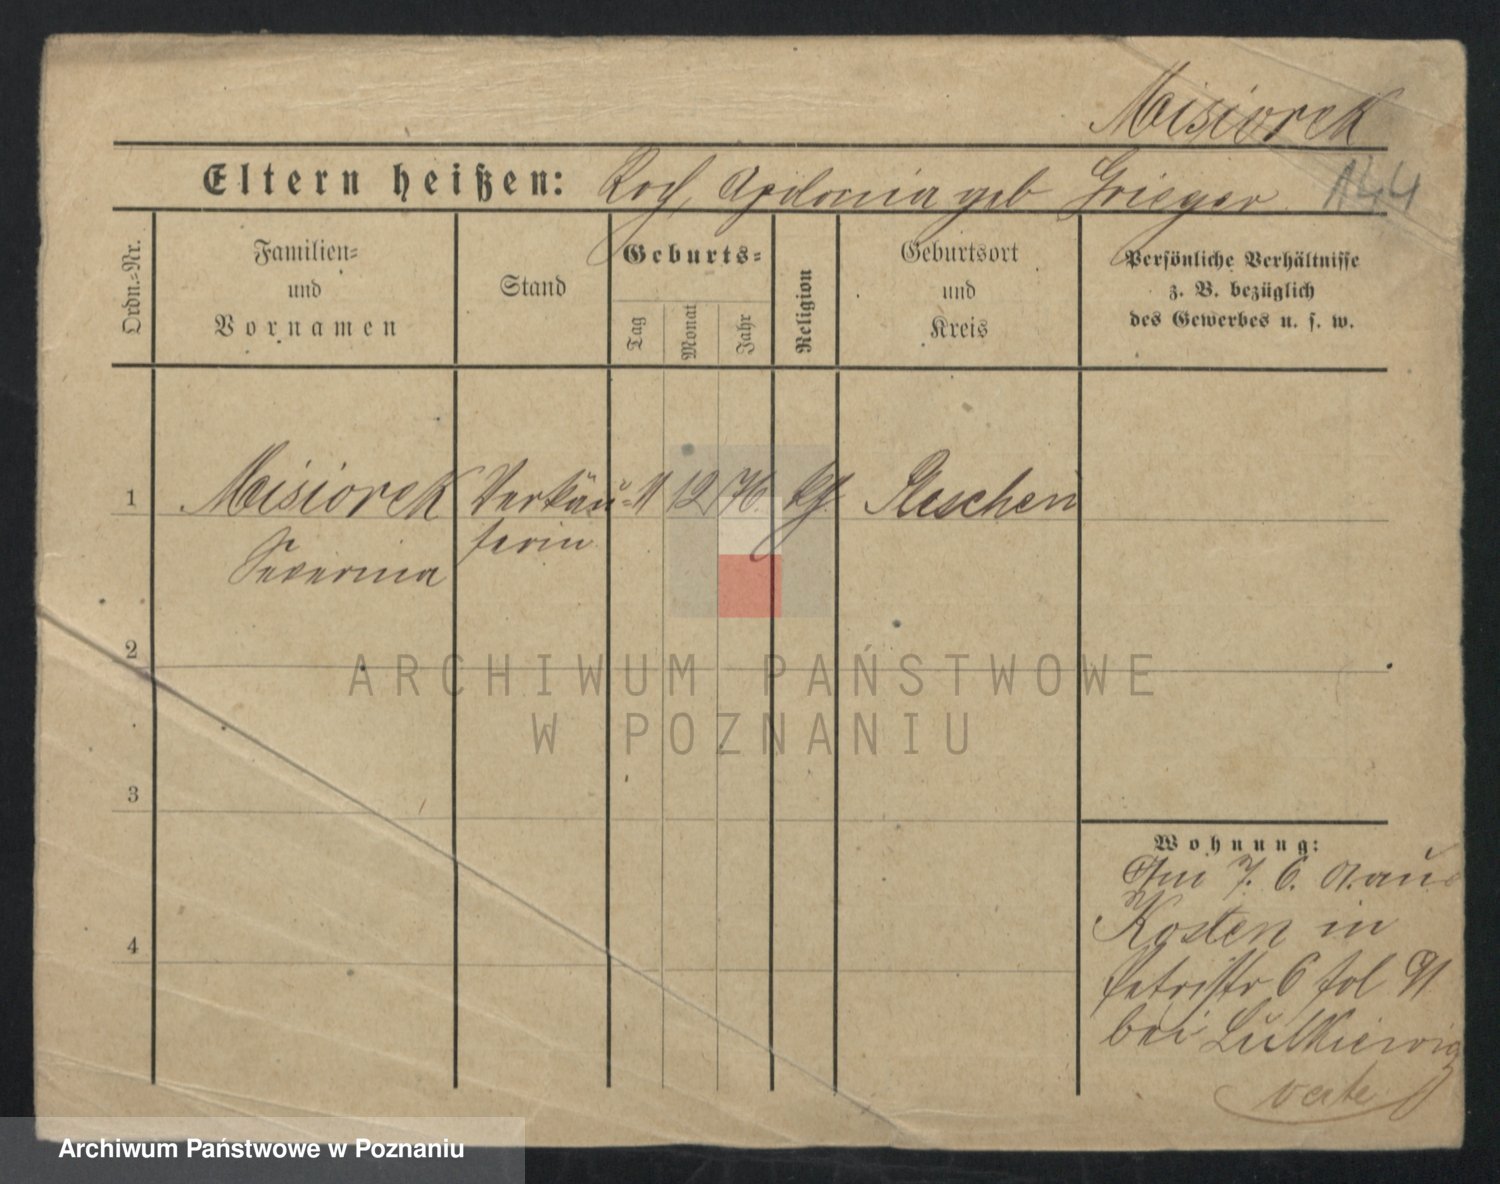 Misiorek
Eltern heißen: Roch, Apolonia geb Grieger 144
Ordn.-Nr.
Familien-
und
Vornamen
Stand
Geburts-
Tag
Monat
Jahr
Religion
Geburtsort
und
Kreis
Persönliche Verhältnisse
z. B. bezüglich
des Gewerbes u. s. w.
1 Misiorek Verkäu- 11 12 76. kth. Pleschen
Severina ferin
2
ARCHIWUM PAŃSTWOWE
W POZNANIU
3
4
Wohnung:
Am 7. 6. 01. aus
Kosten in
Petristr 6 fol 91
bei
verte
Archiwum Państwowe w Poznaniu